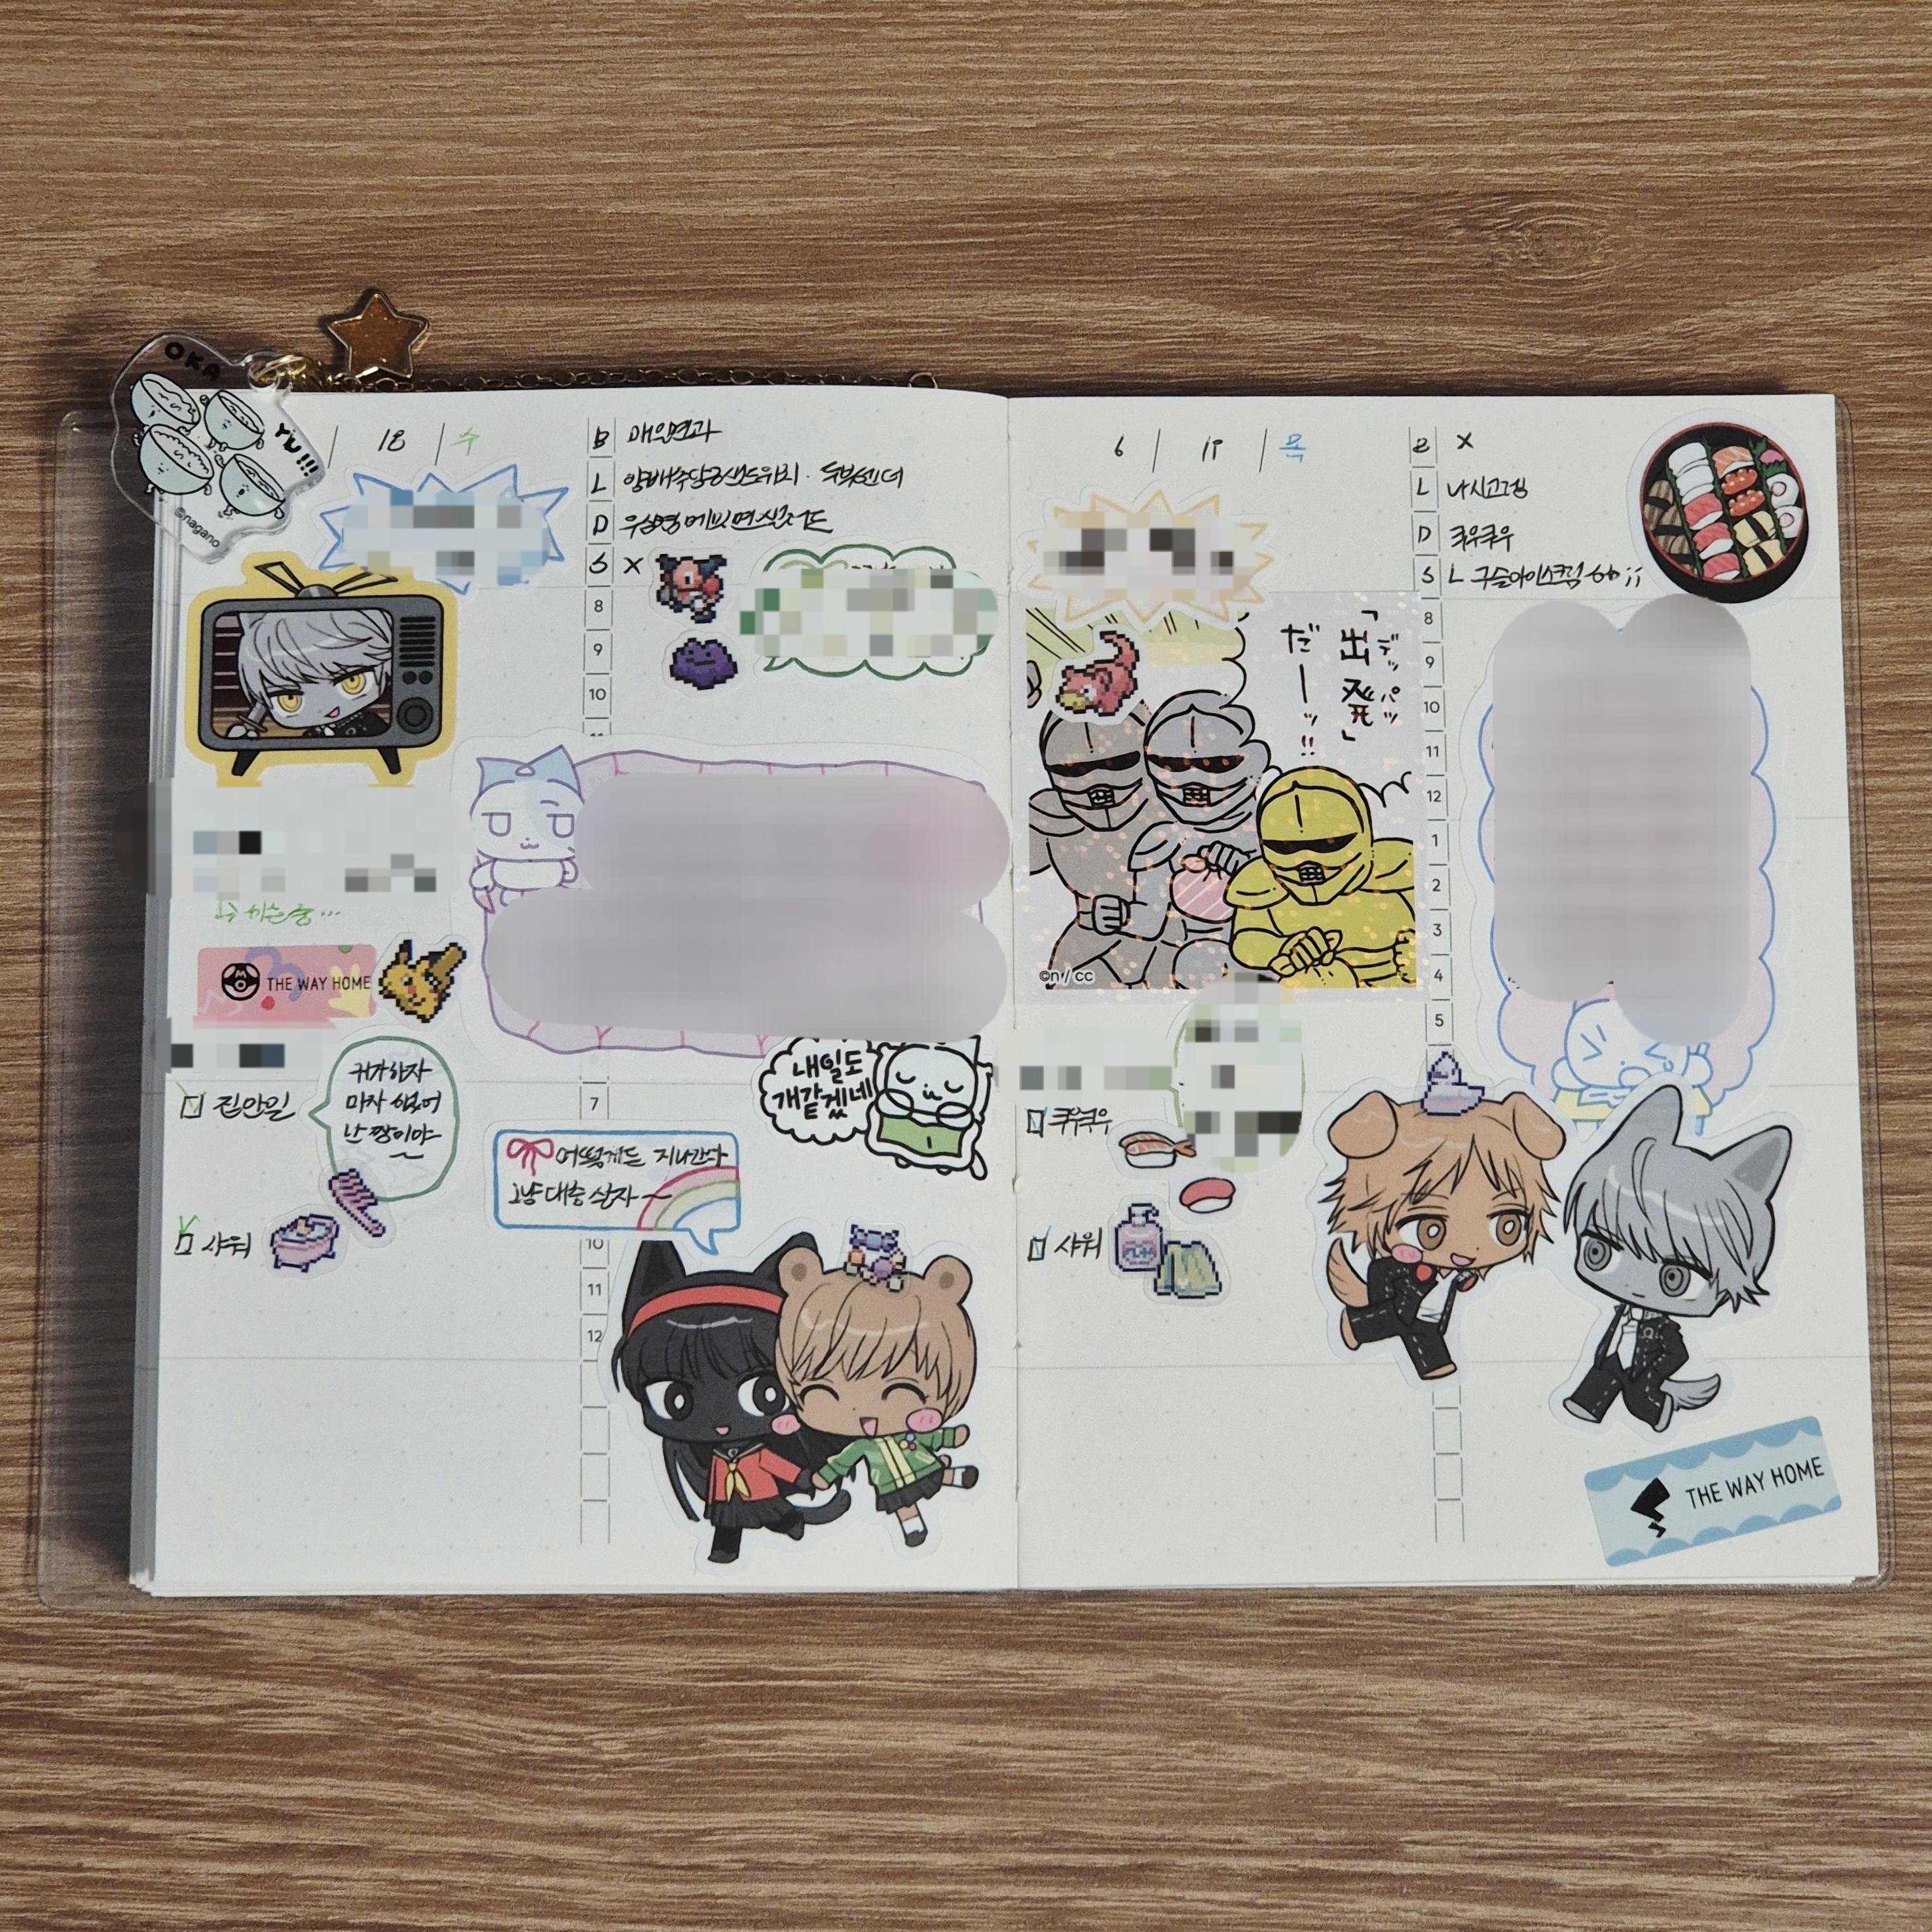 OKA
YU!!!
©nagano
18
수
B 매일견과
L 양배추당근샌드위치 · 두부텐더
D
S X
8
9
10
11
THE WAY HOME
귀가하자
마자
난 짱이야~
집안일
샤워
내일도
개같겠네
7
어떻게든 지나간다
그냥 대충 살자~
10
11
12
6
19
목
B X
L 나시고랭
D 쿠우쿠우
S L 구슬아이스크림 ;;
「出発」
デッパツ
だーッ!!
©n / cc
8
9
10
11
12
1
2
3
4
5
쿠우쿠우
샤워
THE WAY HOME